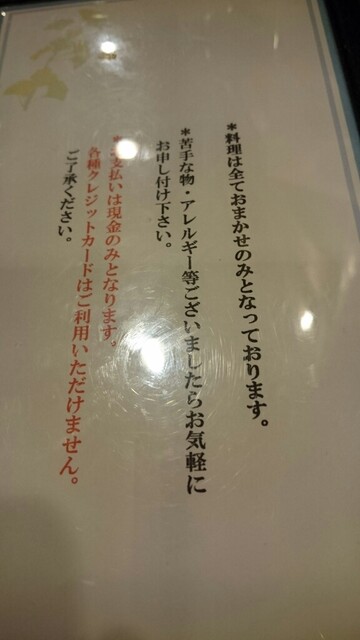 ＊料理は全ておまかせのみとなっております。
＊苦手な物・アレルギー等ございましたらお気軽に
お申し付け下さい。
支払いは現金のみとなります。
各種クレジットカードはご利用いただけません。
ご了承ください。